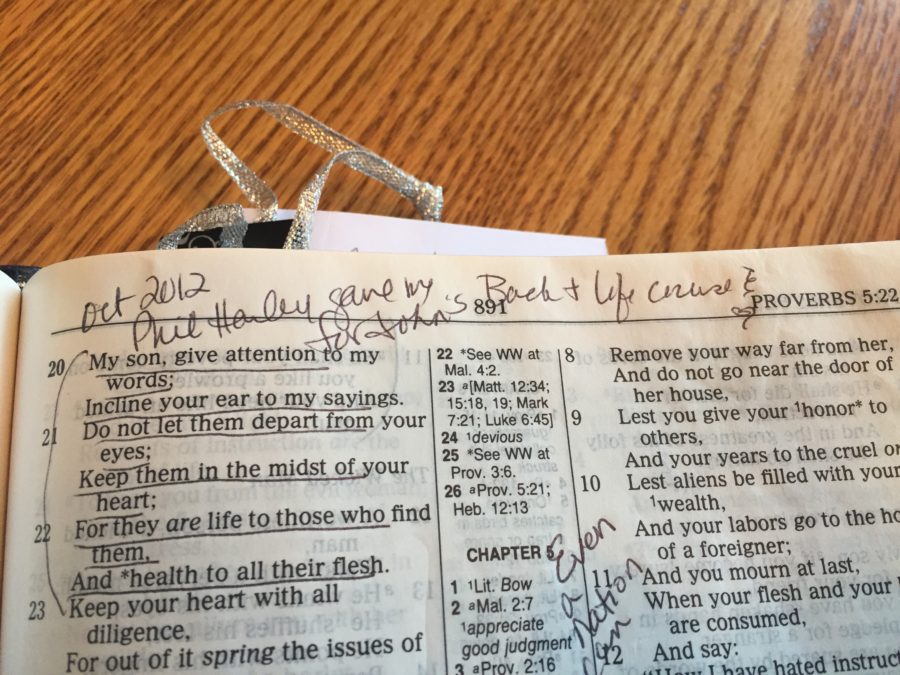 oct 2012
Phil Hanley gave my
for John's Back + life course &
891
PROVERBS 5:22
20 My son, give attention to my
words;
Incline your ear to my sayings.
21 Do not let them depart from your
eyes;
Keep them in the midst of your
heart;
22 For they are life to those who find
them,
And *health to all their flesh.
23 Keep your heart with all
diligence,
For out of it spring the issues of
22 *See WW at
Mal. 4:2.
23 a[Matt. 12:34;
15:18, 19; Mark
7:21; Luke 6:45]
24 1devious
25 *See WW at
Prov. 3:6.
26 aProv. 5:21;
Heb. 12:13
CHAPTER 5
1 1Lit. Bow
2 aMal. 2:7
1appreciate
good judgment
3 aProv. 2:16
Even
a
Nation
8 Remove your way far from her,
And do not go near the door of
her house,
9 Lest you give your 1honor* to
others,
And your years to the cruel
10 Lest aliens be filled with your
1wealth,
And your labors go to the
of a foreigner;
11 And you mourn at last,
When your flesh and your
are consumed,
12 And say:
"How I have hated